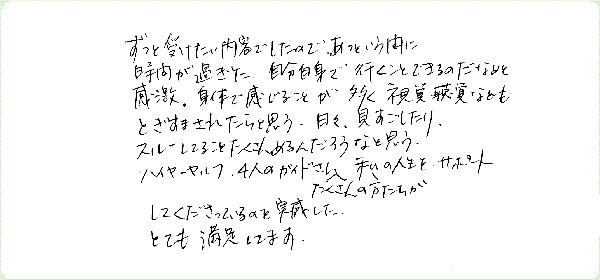 ずっと受けたい内容でしたので、あっという間に
時間が過ぎた。自分自身で行くことできるのだなぁと
感激。身体で感じることが多く視覚聴覚なども
とぎすまされたらと思う。日々、見すごしたり、
スルーしてることたくさんあるんだろうなと思う。
ハイヤーセルフ、4人のガイドさん、たくさんの方たちが 私の人生をサポート
してくださっているのを実感した。
とても満足してます。